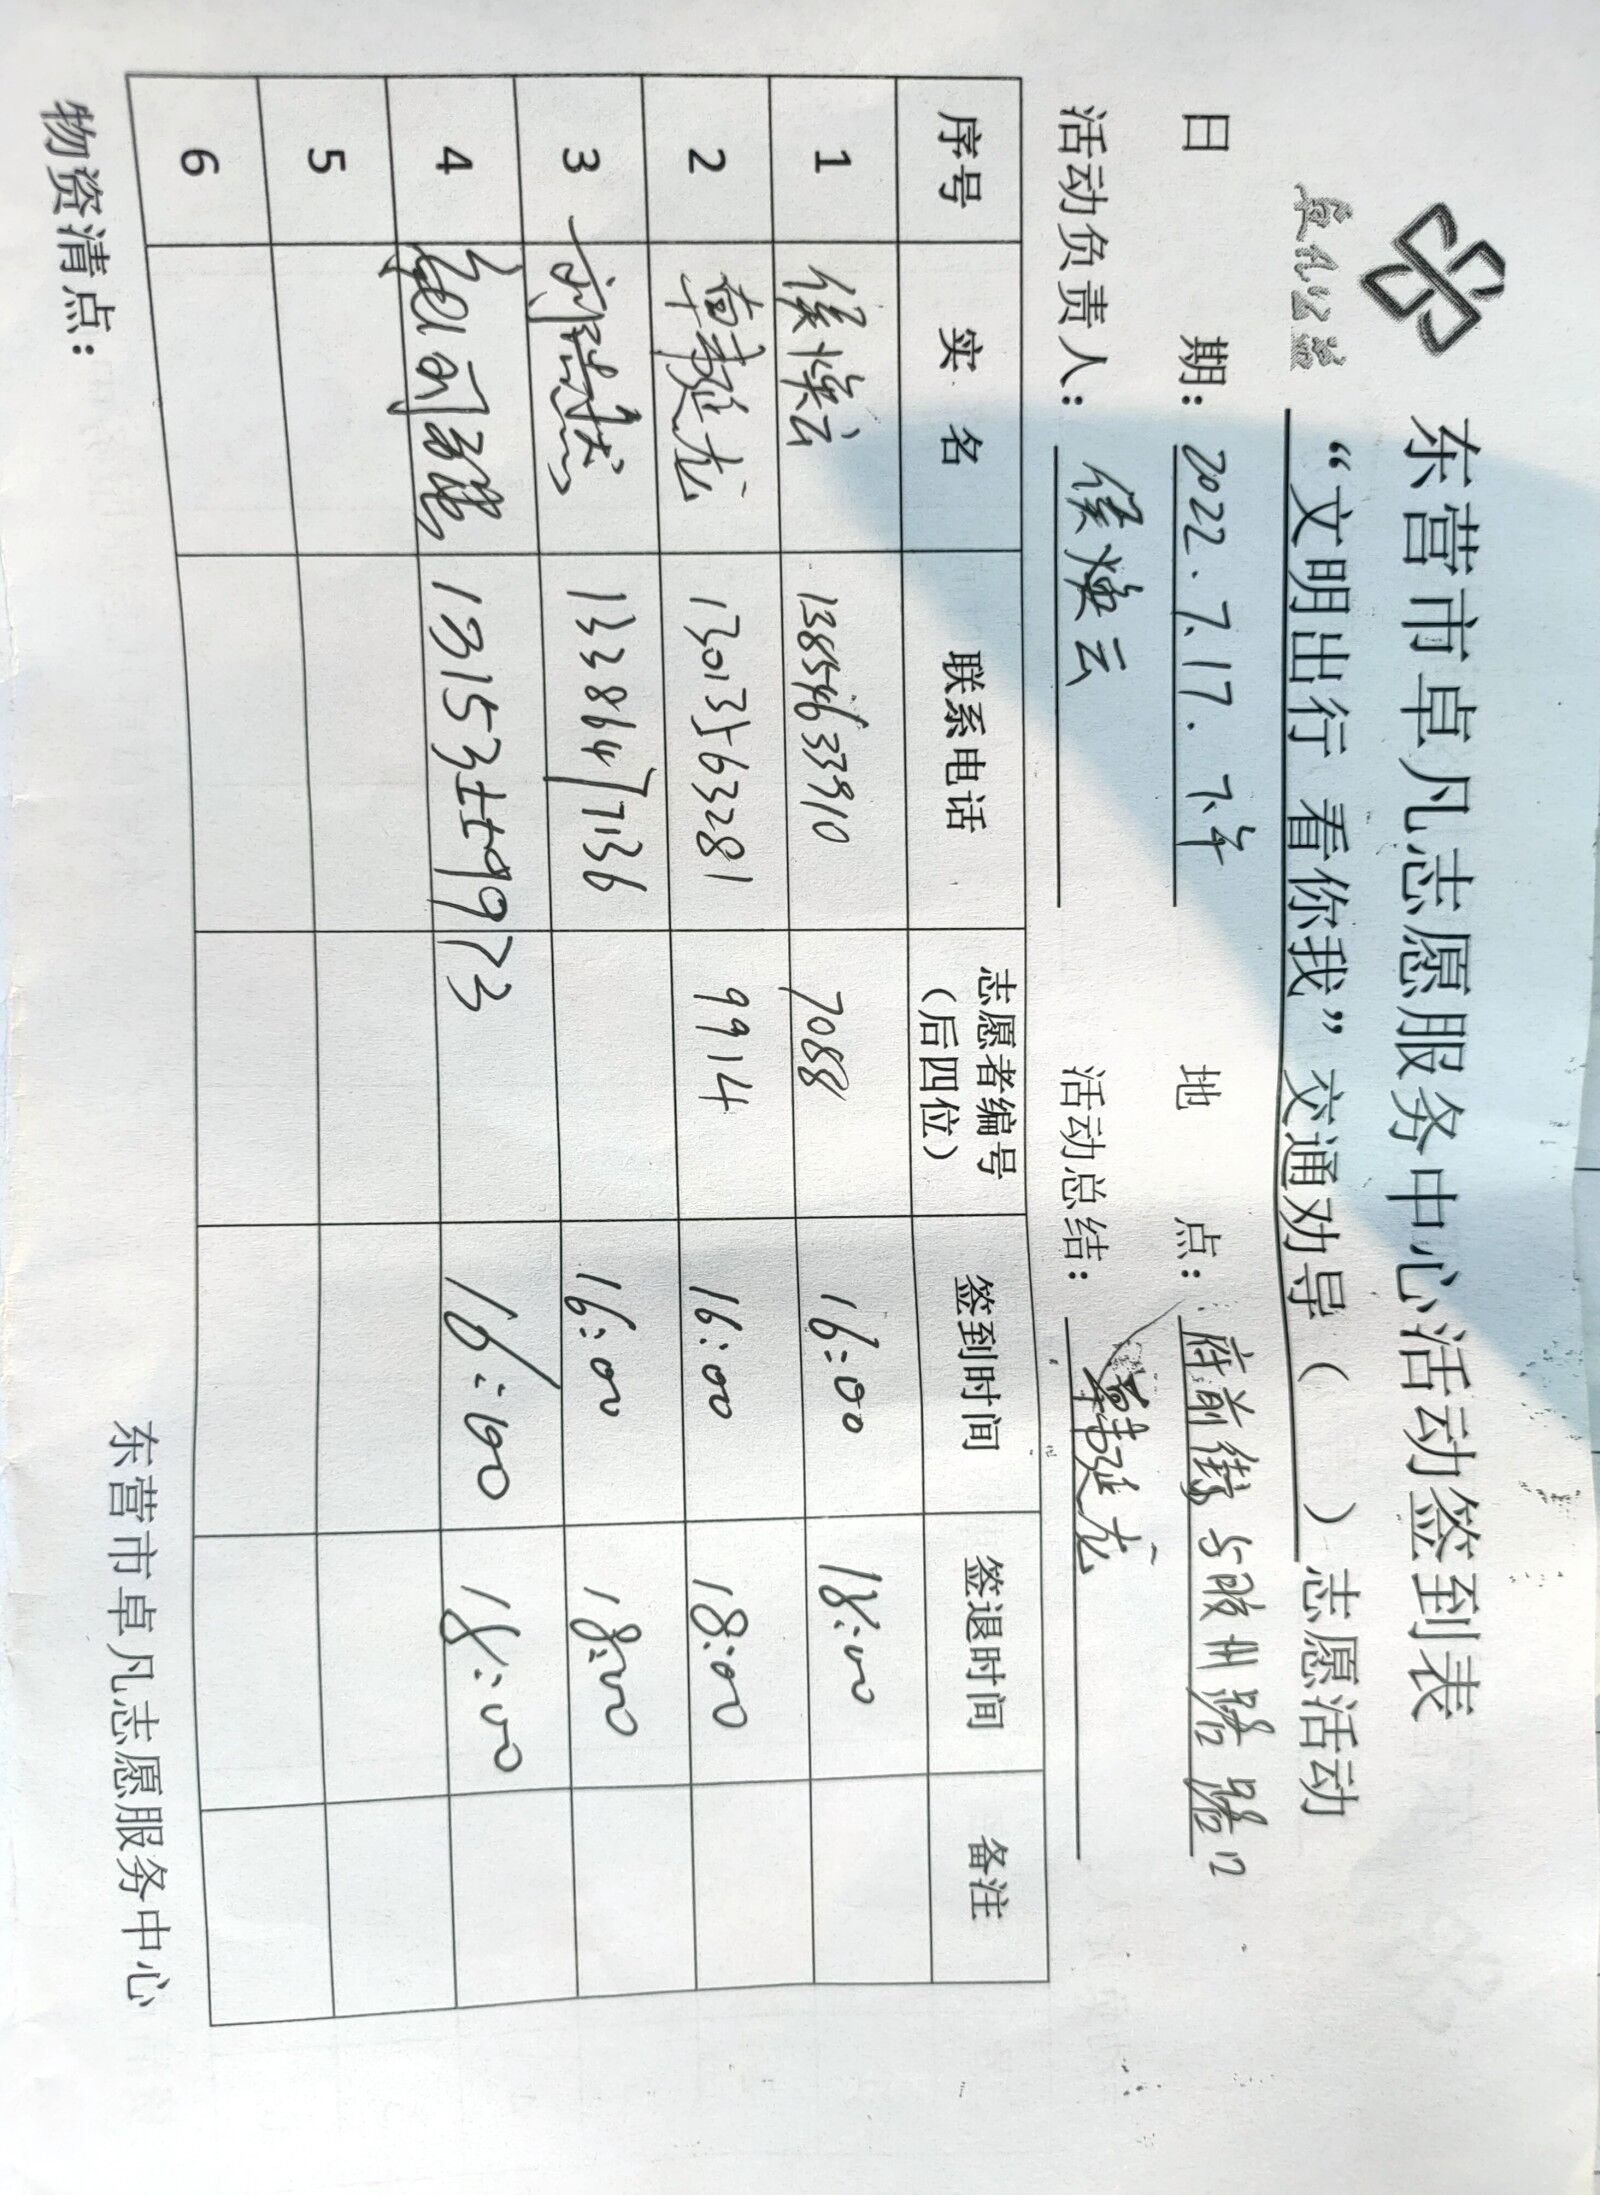 卓凡公益
东营市卓凡志愿服务中心活动签到表
“文明出行 看你我”交通劝导（ ）志愿活动
日 期：2022.7.17.下午 地 点：府前街与胶州路路口
活动负责人：侯焕云 活动总结：韩延龙
序号 实 名 联系电话 志愿者编号（后四位） 签到时间 签退时间 备注
1 侯焕云 13854633910 7088 16:00 18:00
2 韩延龙 130135563281 9914 16:00 18:00
3 13386471136 16:00 18:00
4 16:00 18:00
5
6
物资清点：
东营市卓凡志愿服务中心